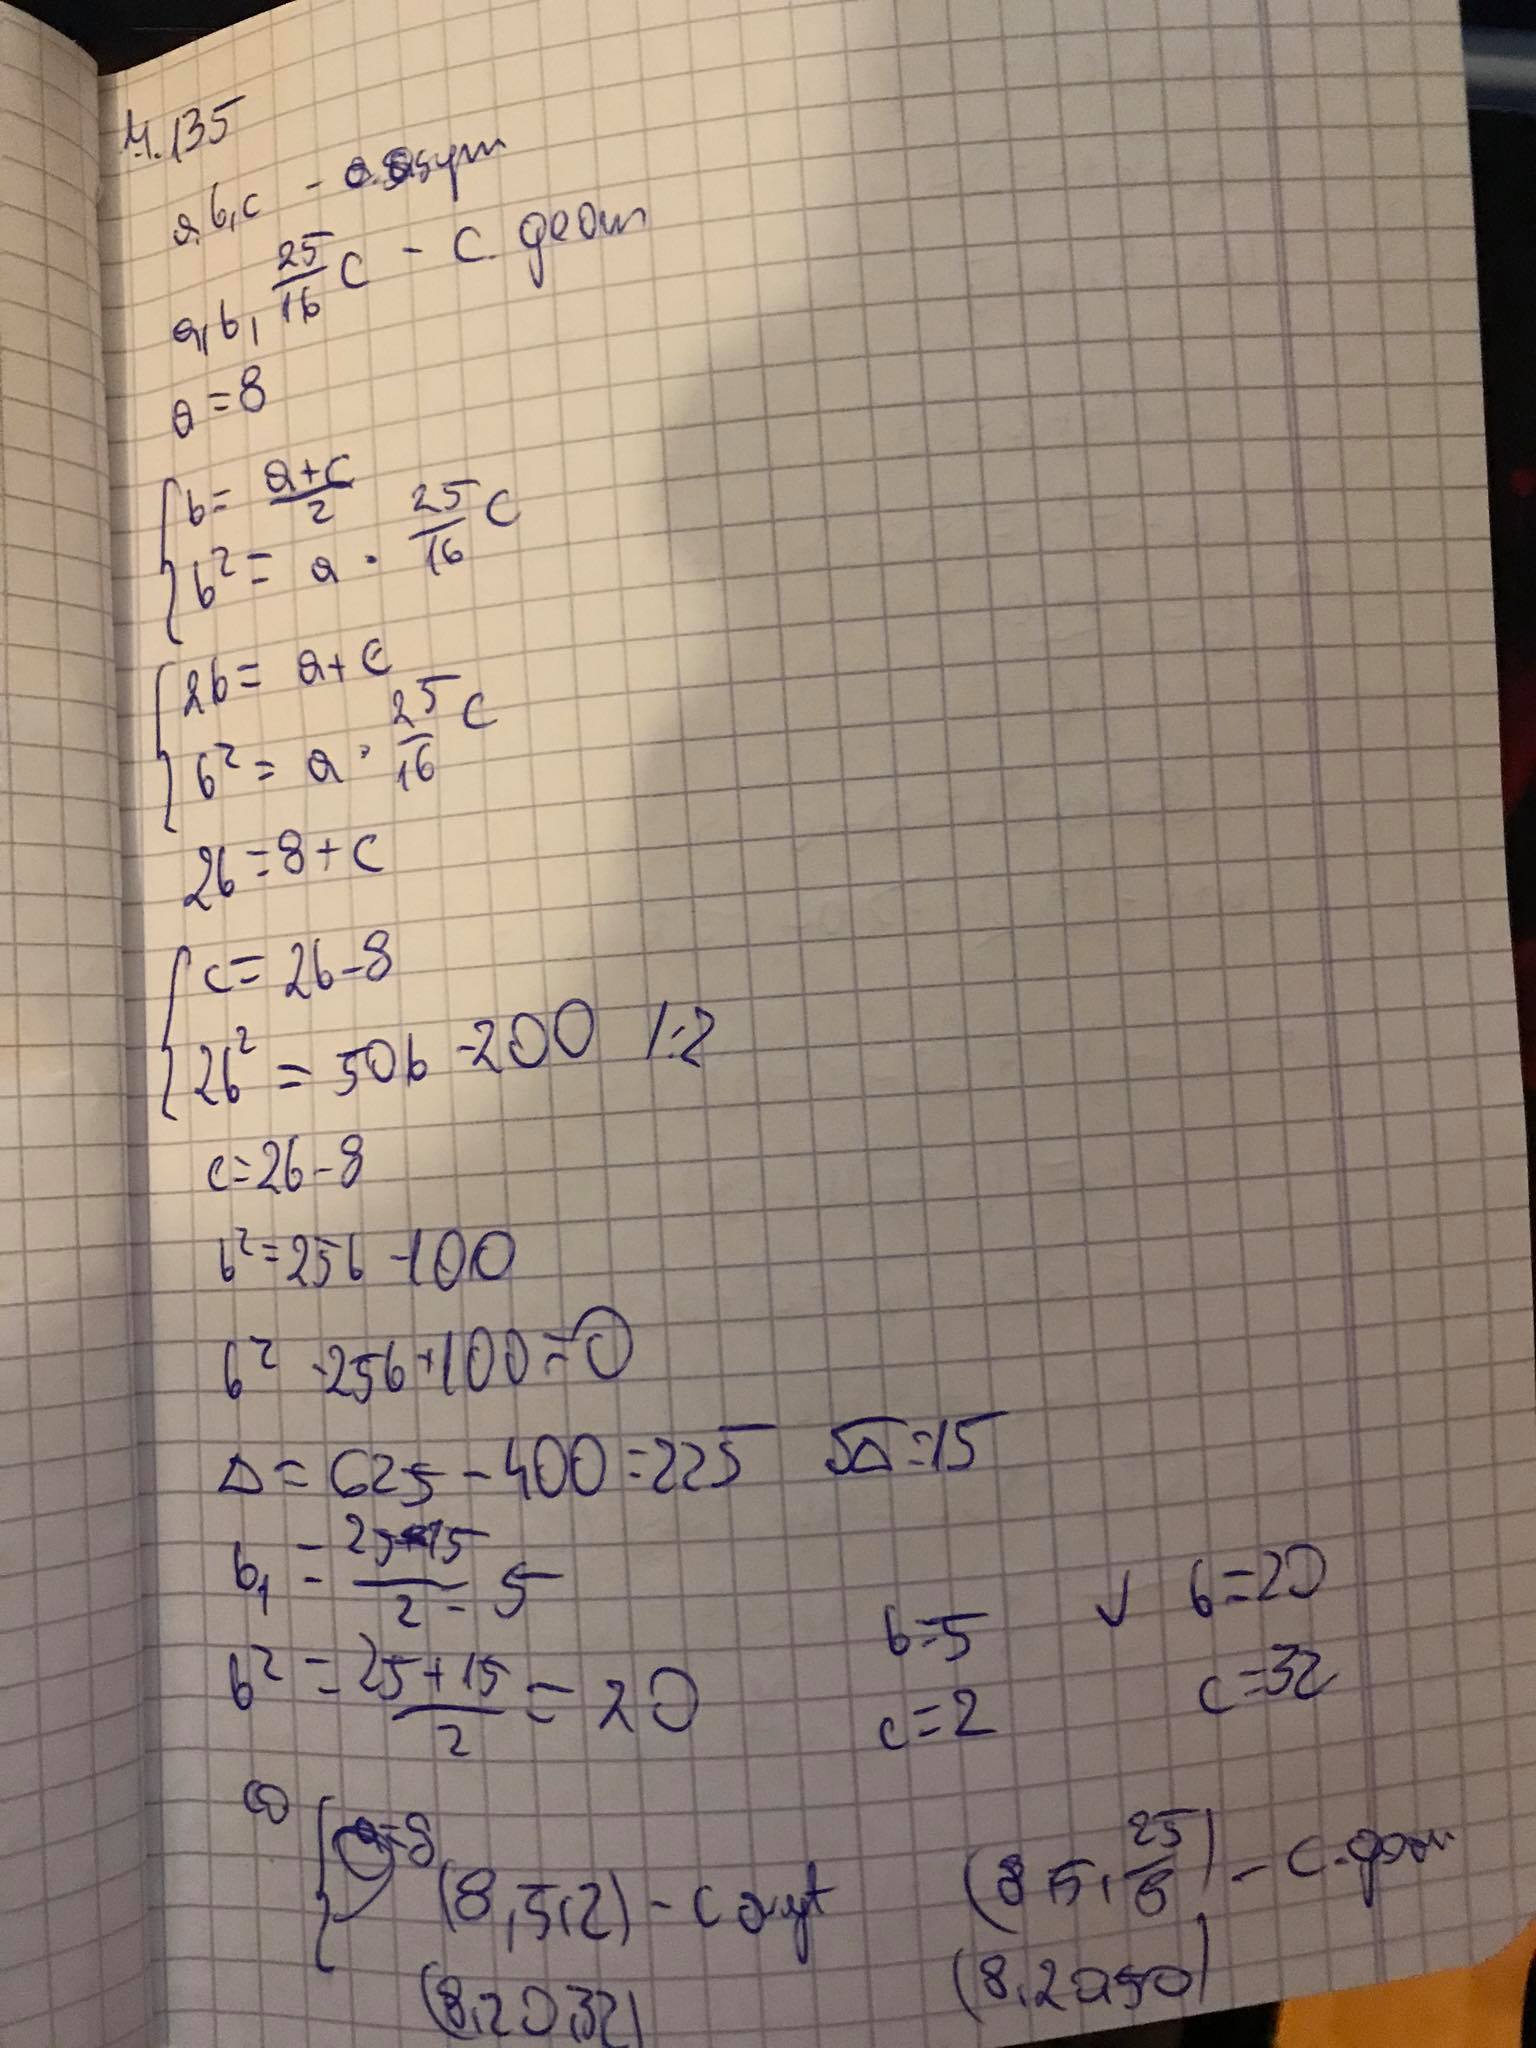 4.135
a, b, c - c. arytm
a, b, 25/16 c - c. geom
a = 8
b = (a+c)/2
b² = a · 25/16 c
2b = a + c
b² = a · 25/16 c
2b = 8 + c
c = 2b - 8
2b² = 50b - 200 /:2
c = 2b - 8
b² = 25b - 100
b² - 25b + 100 = 0
Δ = 625 - 400 = 225 √Δ = 15
b₁ = (25-15)/2 = 5
b² = (25+15)/2 = 20
b=5 ∨ b=20
c=2 c=32
a=8
(8, 5, 2) - c aryt (8, 5, 25/8) - c. geom
(8, 20, 32) (8, 20, 50)